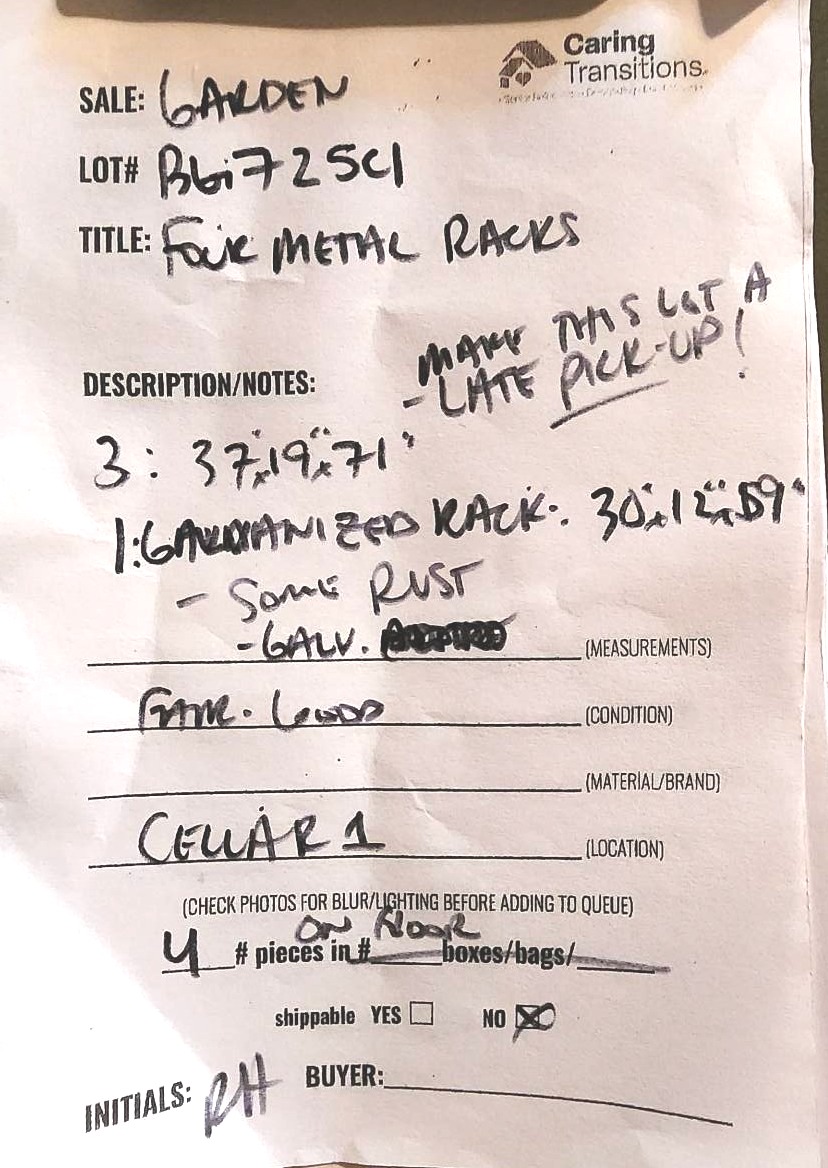 Caring
Transitions.
SALE: GARDEN
LOT# BGi725C1
TITLE: FOUR METAL RACKS
MAKE THIS LOT A
- LATE PICK-UP!
DESCRIPTION/NOTES:
3: 37"x19"x71"
1: GALVANIZED RACK: 30"x12"x59"
- SOME RUST
- GALV. (MEASUREMENTS)
FAIR-GOOD (CONDITION)
(MATERIAL/BRAND)
CELLAR 1 (LOCATION)
(CHECK PHOTOS FOR BLUR/LIGHTING BEFORE ADDING TO QUEUE)
ON FLOOR
4 # pieces in # boxes/bags/
shippable YES NO
INITIALS: RH BUYER: